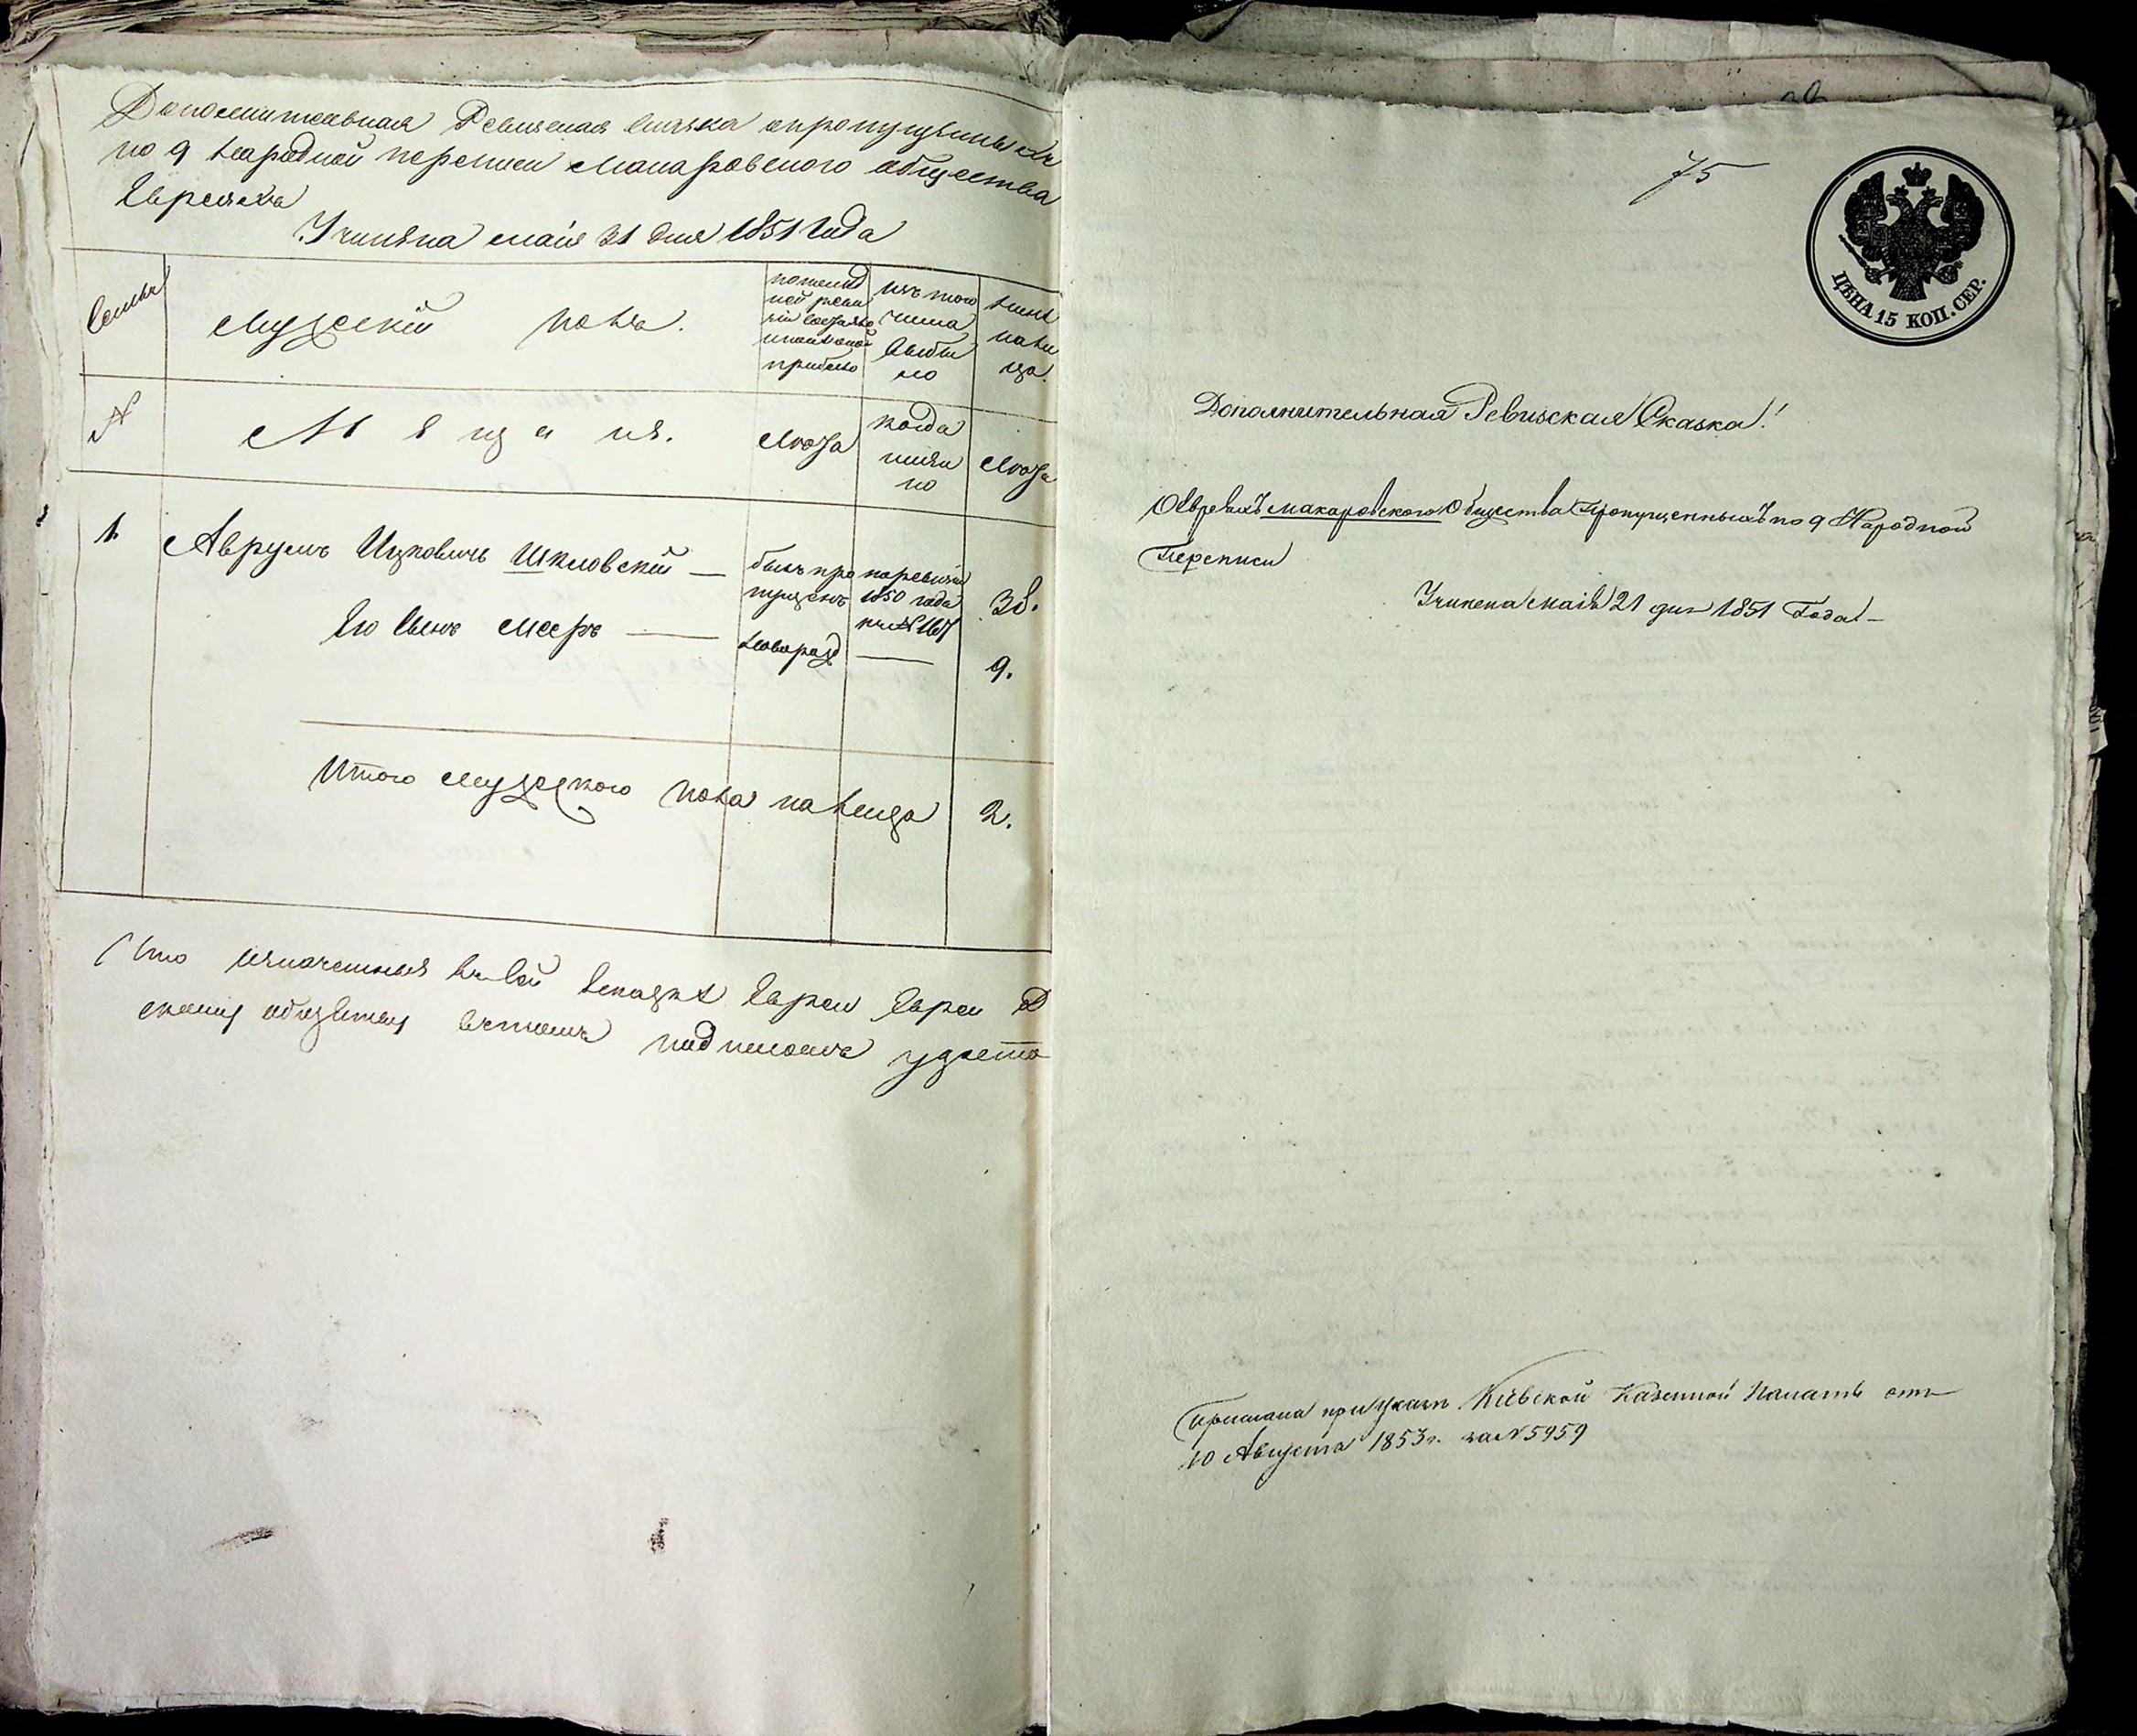 Дополнительная Ревизская сказка опропущенныхъ
по 9 народной переписи Макаровского общества
Евреяхъ
Учинена маія 31 дня 1851 года
Семьи
мужескій полъ.
последней ревизіи состояло и после оной прибыло
изъ того числа выбыло
ныне на лицо.
№
Мѣщане.
лѣта
когда именно
лѣта
1.
Аврумъ Ицковичъ Шкловскій —
былъ пропущенъ
поревизіи 1850 года подъ № 167
38.
Его сынъ Мееръ —
новорожд
—
9.
Итого мужеского пола налицо
2.
Что
въ сей сказке Евреи Евреи
подписомъ
75
ЦѢНА 15 КОП. СЕР.
Дополнительная Ревизская Сказка!
О Евреяхъ Макаровского Общества Пропущенныхъ по 9 Народной
Переписи
Учинена маія 21 дня 1851 Года —
Прислана при указѣ Кіевской Казенной Палаты отъ
10 Августа 1853 г. за № 5959